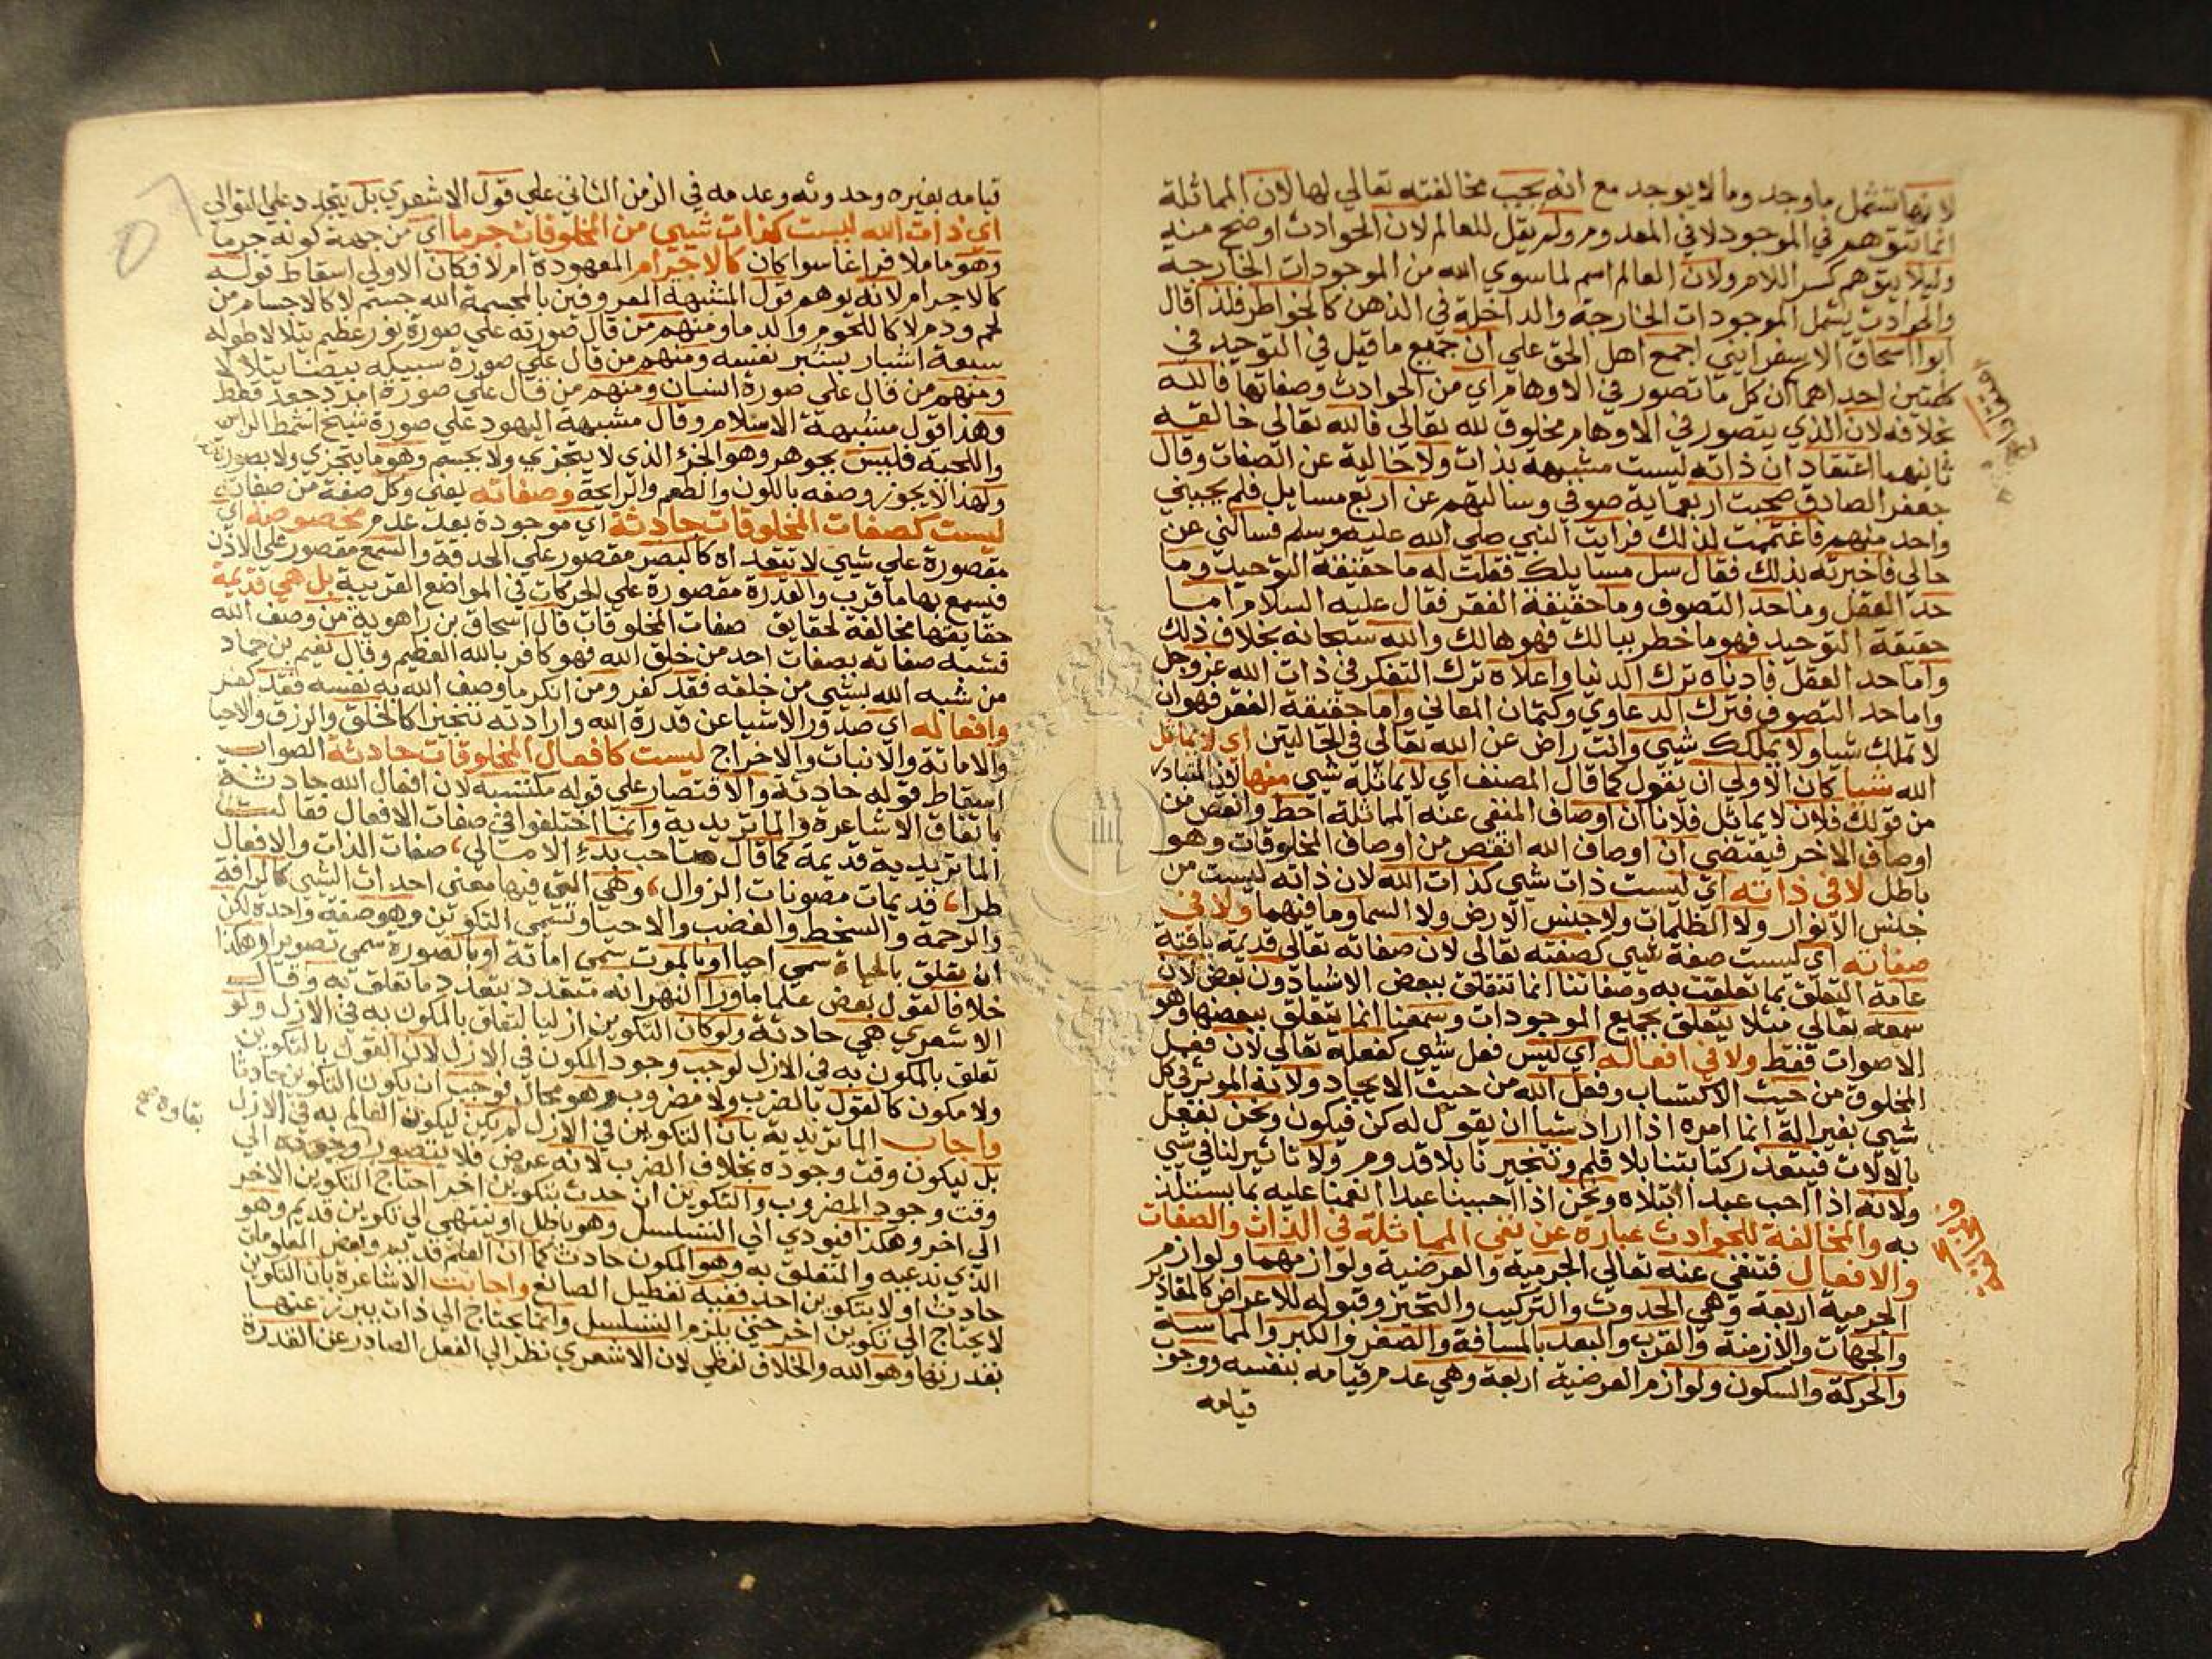 لانها تشمل ما وجد وما لا يوجد مع انه يجب مخالفته تعالي لها لان المماثلة
انما تتوهم في الموجود لا في المعدوم ولم يقل للعالم لان الحوادث اوضح منه
وليلا يتوهم كسر اللام ولان العالم اسم لما سوي الله من الموجودات الخارجة
والحوادث يشمل الموجودات الخارجة والداخلة في الذهن كالخواطر فلذا قال
ابوا اسحاق الاسفرايني اجمع اهل الحق علي ان جميع ما قيل في التوحيد في
كلمتين احداهما ان كل ما تصور في الاوهام اي من الحوادث وصفاتها فالله
بخلافه لان الذي يتصور في الاوهام مخلوق لله تعالي فالله تعالي خالقه
ثانيهما اعتقاد ان ذاته ليست مشبهة بذات ولا خالية عن الصفات وقال
جعفر الصادق صحبت اربعماية صوفي وسالتهم عن اربع مسايل فلم يجبني
واحد منهم فاغتممت لذلك فرايت النبي صلي الله عليه وسلم فسالني عن
حالي فاخبرته بذلك فقال سل مسايلك فقلت له ما حقيقة التوحيد وما
حد العقل وما حد التصوف وما حقيقة الفقر فقال عليه السلام اما
حقيقة التوحيد فهو ما خطر ببالك فهو هالك والله سبحانه بخلاف ذلك
واما حد العقل فادناه ترك الدنيا واعلاه ترك التفكر في ذات الله عز وجل
واما حد التصوف فترك الدعاوي وكتمان المعاني واما حقيقة الفقر فهو ان
لا تملك شيا ولا يملكك شيي وانت راض عن الله تعالي في الحالين اي لا يماثل
الله شيا كان الاولي ان يقول كما قال المصنف اي لا يماثله شيي منها لان المتبادر
من قولك فلان لا يماثل فلانا ان اوصاف المنفي عنه المماثلة احط وانقص من
اوصاف الاخر فيقتضي ان اوصاف الله انقص من اوصاف المخلوقات وهو
باطل لا في ذاته اي ليست ذات شيي كذات الله لان ذاته ليست من
جنس الانوار ولا الظلمات ولا جنس الارض ولا السما وما فيهما ولا في
صفاته اي ليست صفة شيي كصفته تعالي لان صفاته تعالي قديمة باقية
عامة التعلق بما تعلقت به وصفاتنا انما تتعلق ببعض الاشيا دون بعض لان
سمعه تعالي مثلا يتعلق بجميع الموجودات وسمعنا انما يتعلق ببعضها وهو
الاصوات فقط ولا في افعاله اي ليس فعل شيي كفعله تعالي لان فعل
المخلوق من حيث الاكتساب وفعل الله من حيث الايجاد ولانه الموثر في كل
شيي بغير الة انما امره اذا اراد شيا ان يقول له كن فيكون ونحن نفعل
بالالات فيتعذر كتابتنا بلا قلم وتنجيرنا بلا قدوم ولا تاثير لنا في شيي
ولانه اذا احب عبدا ابتلاه ونحن اذا احببنا عبدا انعمنا عليه بما يستلذ
به والمخالفة للحوادث عبارة عن نفي المماثلة في الذات والصفات
والافعال فتنفي عنه تعالي الجرمية والعرضية ولوازمهما ولوازم
الجرمية اربعة وهي الحدوث والتركيب والتحيز وقبوله للاعراض كالمقادير
والجهات والازمنة والقرب والبعد بالمسافة والصغر والكبر والمماسة
والحركة والسكون ولوازم العرضية اربعة وهي عدم قيامه بنفسه ووجوب
قيامه
قيامه بغيره وحدوثه وعدمه في الزمن الثاني علي قول الاشعري بل يتجدد علي التوالي
اي ذات الله ليست كذات شيي من المخلوقات جرما اي من جهة كونه جرما
وهو ما ملا فراغا سوا كان كالاجرام المعهودة ام لا فكان الاولي اسقاط قوله
كالاجرام لانه يوهم قول المشبهة المعروفين بالمجسمة الله جسم لا كالاجسام من
لحم ودم لا كاللحوم والدما ومنهم من قال صورته علي صورة نور عظيم يتلالا طوله
سبعة اشبار بشبر نفسه ومنهم من قال علي صورة سبيكة بيضا يتلالا
ومنهم من قال علي صورة انسان ومنهم من قال علي صورة امرد جعد قطط
وهذا قول مشبهة الاسلام وقال مشبهة اليهود علي صورة شيخ اشمط الراس
واللحية فليس بجوهر وهو الجزء الذي لا يتجزي ولا بجسم وهو ما يتجزي ولا بصورة
ولهذا لا يجوز وصفه باللون والطعم والرايحة وصفاته يعني وكل صفة من صفاته
ليست كصفات المخلوقات حادثة اي موجودة بعد عدم مخصوصة اي
مقصورة علي شيي لا تتعداه كالبصر مقصور علي الحدقة والسمع مقصور علي الاذن
فتسمع بها ما قرب والقدرة مقصورة علي الحركات في المواضع القريبة بل هي قديمة
حقايقها مخالفة لحقايق صفات المخلوقات قال اسحاق بن راهوية من وصف الله
فشبه صفاته بصفات احد من خلق الله فهو كافر بالله العظيم وقال نعيم بن حماد
من شبه الله بشيي من خلقه فقد كفر ومن انكر ما وصف الله به نفسه فقد كفر
وافعاله اي صدور الاشيا عن قدرة الله وارادته تنجيزا كالخلق والرزق والاحيا
والاماتة والانبات والاخراج ليست كافعال المخلوقات حادثة الصواب
اسقاط قوله حادثة والاقتصار علي قوله مكتسبه لان افعال الله حادثة
باتفاق الاشاعرة والماتريدية وانما اختلفوا في صفات الافعال فقالت
الماتريدية قديمة كما قال صاحب بدء الامالي، صفات الذات والافعال
طرا، قديمات مصونات الزوال، وهي التي فيها معني احداث الشيي كالرافة
والرحمة والسخط والغضب والاحيا وتسمي التكوين وهو صفة واحدة لكن
ان تعلق بالحياة سمي احيا او بالموت سمي اماتة او بالصورة سمي تصويرا وهكذا
خلافا لقول بعض علما ماورا النهر انه متعدد بتعدد ما تعلق به وقال
الاشعري هي حادثة ولو كان التكوين ازليا لتعلق بالمكون به في الازل ولو
تعلق بالمكون به في الازل لوجب وجود المكون في الازل لان القول بالتكوين
ولا مكون كالقول بالضرب ولا مضروب وهو محال فوجب ان يكون التكوين حادثا
واجاب الماتريدية بان التكوين في الازل لم يكن ليكون العالم به في الازل
بل ليكون وقت وجوده بخلاف الضرب لانه عرض فلا يتصور وجوده الي
وقت وجود المضروب والتكوين ان حدث بتكوين اخر احتاج التكوين الاخر
الي اخر وهكذا فيودي الي التسلسل وهو باطل او ينتهي الي تكوين قديم وهو
الذي ندعيه والمتعلق به وهو المكون حادث كما ان العلم قديم وبعض المعلومات
حادث او لا بتكوين احد ففيه تعطيل الصانع واجابت الاشاعرة بان التكوين
لا يحتاج الي تكوين اخر حتي يلزم التسلسل وانما يحتاج الي ذات يبرز عنها
بقدرتها وهو الله والخلاف لفظي لان الاشعري نظر الي الفعل الصادر عن القدرة
بقاوه صح